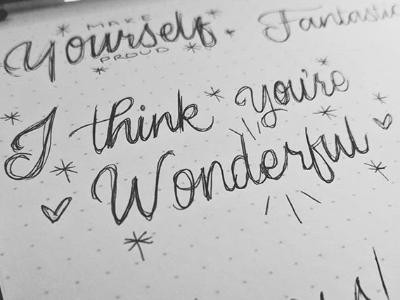 MAKE
Yourself Fantastic
PROUD
I think you're
Wonderful